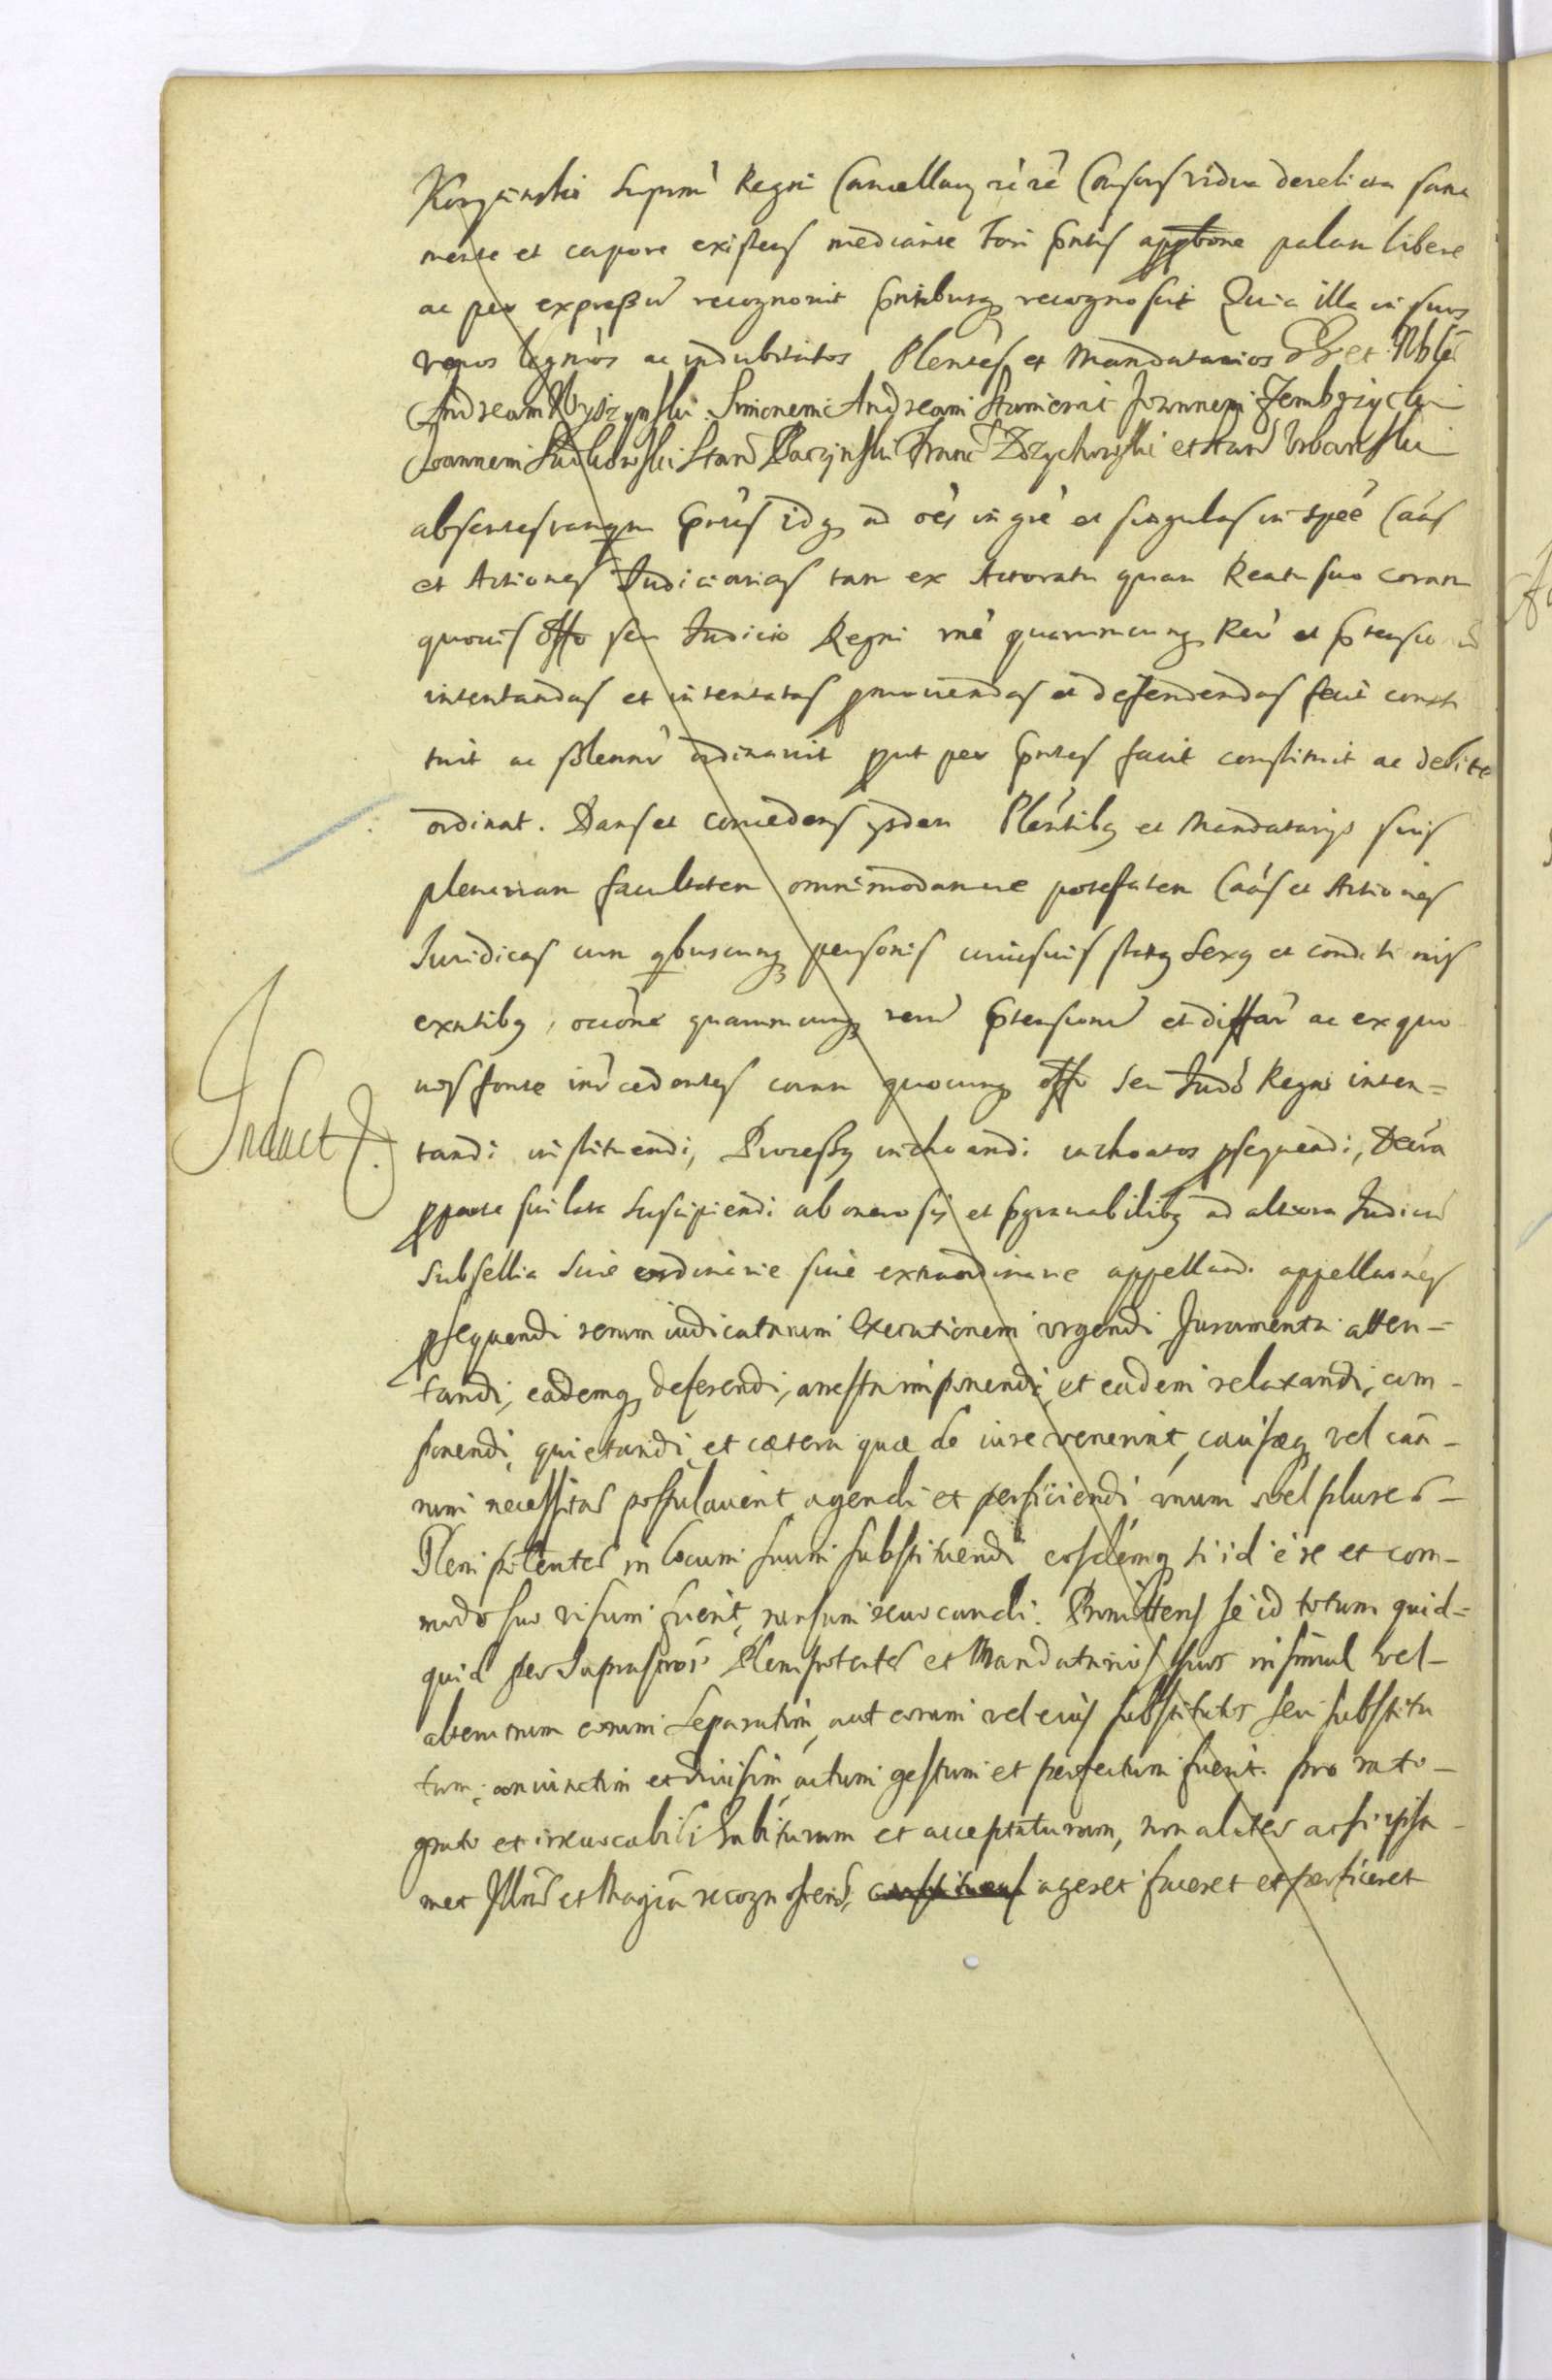 Korycinskie Suprmi Regni Cancellarij Consors vidua derelicta sana
mente et corpore existens mediante tori pntis apptione palam libere
ac per expressū recognovit pntibusq recognoscit Quia illa in suos
veros legmos ac indubitatos Plentes et Mandatarios GG et Nbles
Andream Wyszynski Simonem Andream Joannem Zembrzycki
Joannem Sulkowski Stan Baczynski Franc Zdzychowski et Stan Urbanski
absentes tanqm pntes idq ad oes in gre et singulas in spee Caas
et Actiones Judiciarias tam ex Actoratu quam Reatu suo coram
quovis offo seu Judicio Regni rne quarumcunq Reru et ptensionū
intentandas et intentatas pmovendas et defendendas fecit consti
tuit ac solennr ordinavit put per pntes facit constituit ac debite
ordinat. Dans et concedens ysdem Plentibq et Mandatarijs suis
plenariam facultatem omnimodamue potestatem Caas et Actiones
Juridicas cum qbuscunq personis cuiusuis statq Sexq et conditionis
exntibq, occone quarumcunq rerū ptensionū et diffar ac ex quo
vos fonte inr cedentes coram quocunq offo Seu Judo Regni inten=
Induct tandi instituendi, Processq inchoandi inchoatos psequendi, Decra
pparte sui lata suscipiendi ab onerosis et pgravabilibq ad altiora Judicu
subsellia siue ordinarie siue extraordinarie appellandi appellaones
psequendi rerum iudicatarum executionem urgendi Juramenta atten=
tandi, eademq deferendi, arresta imponendi, et eadem relaxandi, com-
ponendi, quietandi, et cætera quæ de iure venerint, causæq vel caa-
rum necessitas postulauerit agendi et perficiendi, vnum vel plures-
Plenipotentes in locum suum substituendi eosdemq si id è re et com-
modo suo visum fuerit, rursum reuocandi. Promittens se id totum quid=
quid per suprascros Plenipotentes et Mandatarios suos insimul vel-
alterutrum eorum separatim, aut eorum vel eius substitutos seu substitu
tum, coniunctim et diuisim, actum gestum et perfectum fuerit pro rato-
grato et irreuocabili habituram et acceptaturam, non aliter ac si ipsa-
met Illris et Magca recognoscens, constituens ageret faceret et perficeret